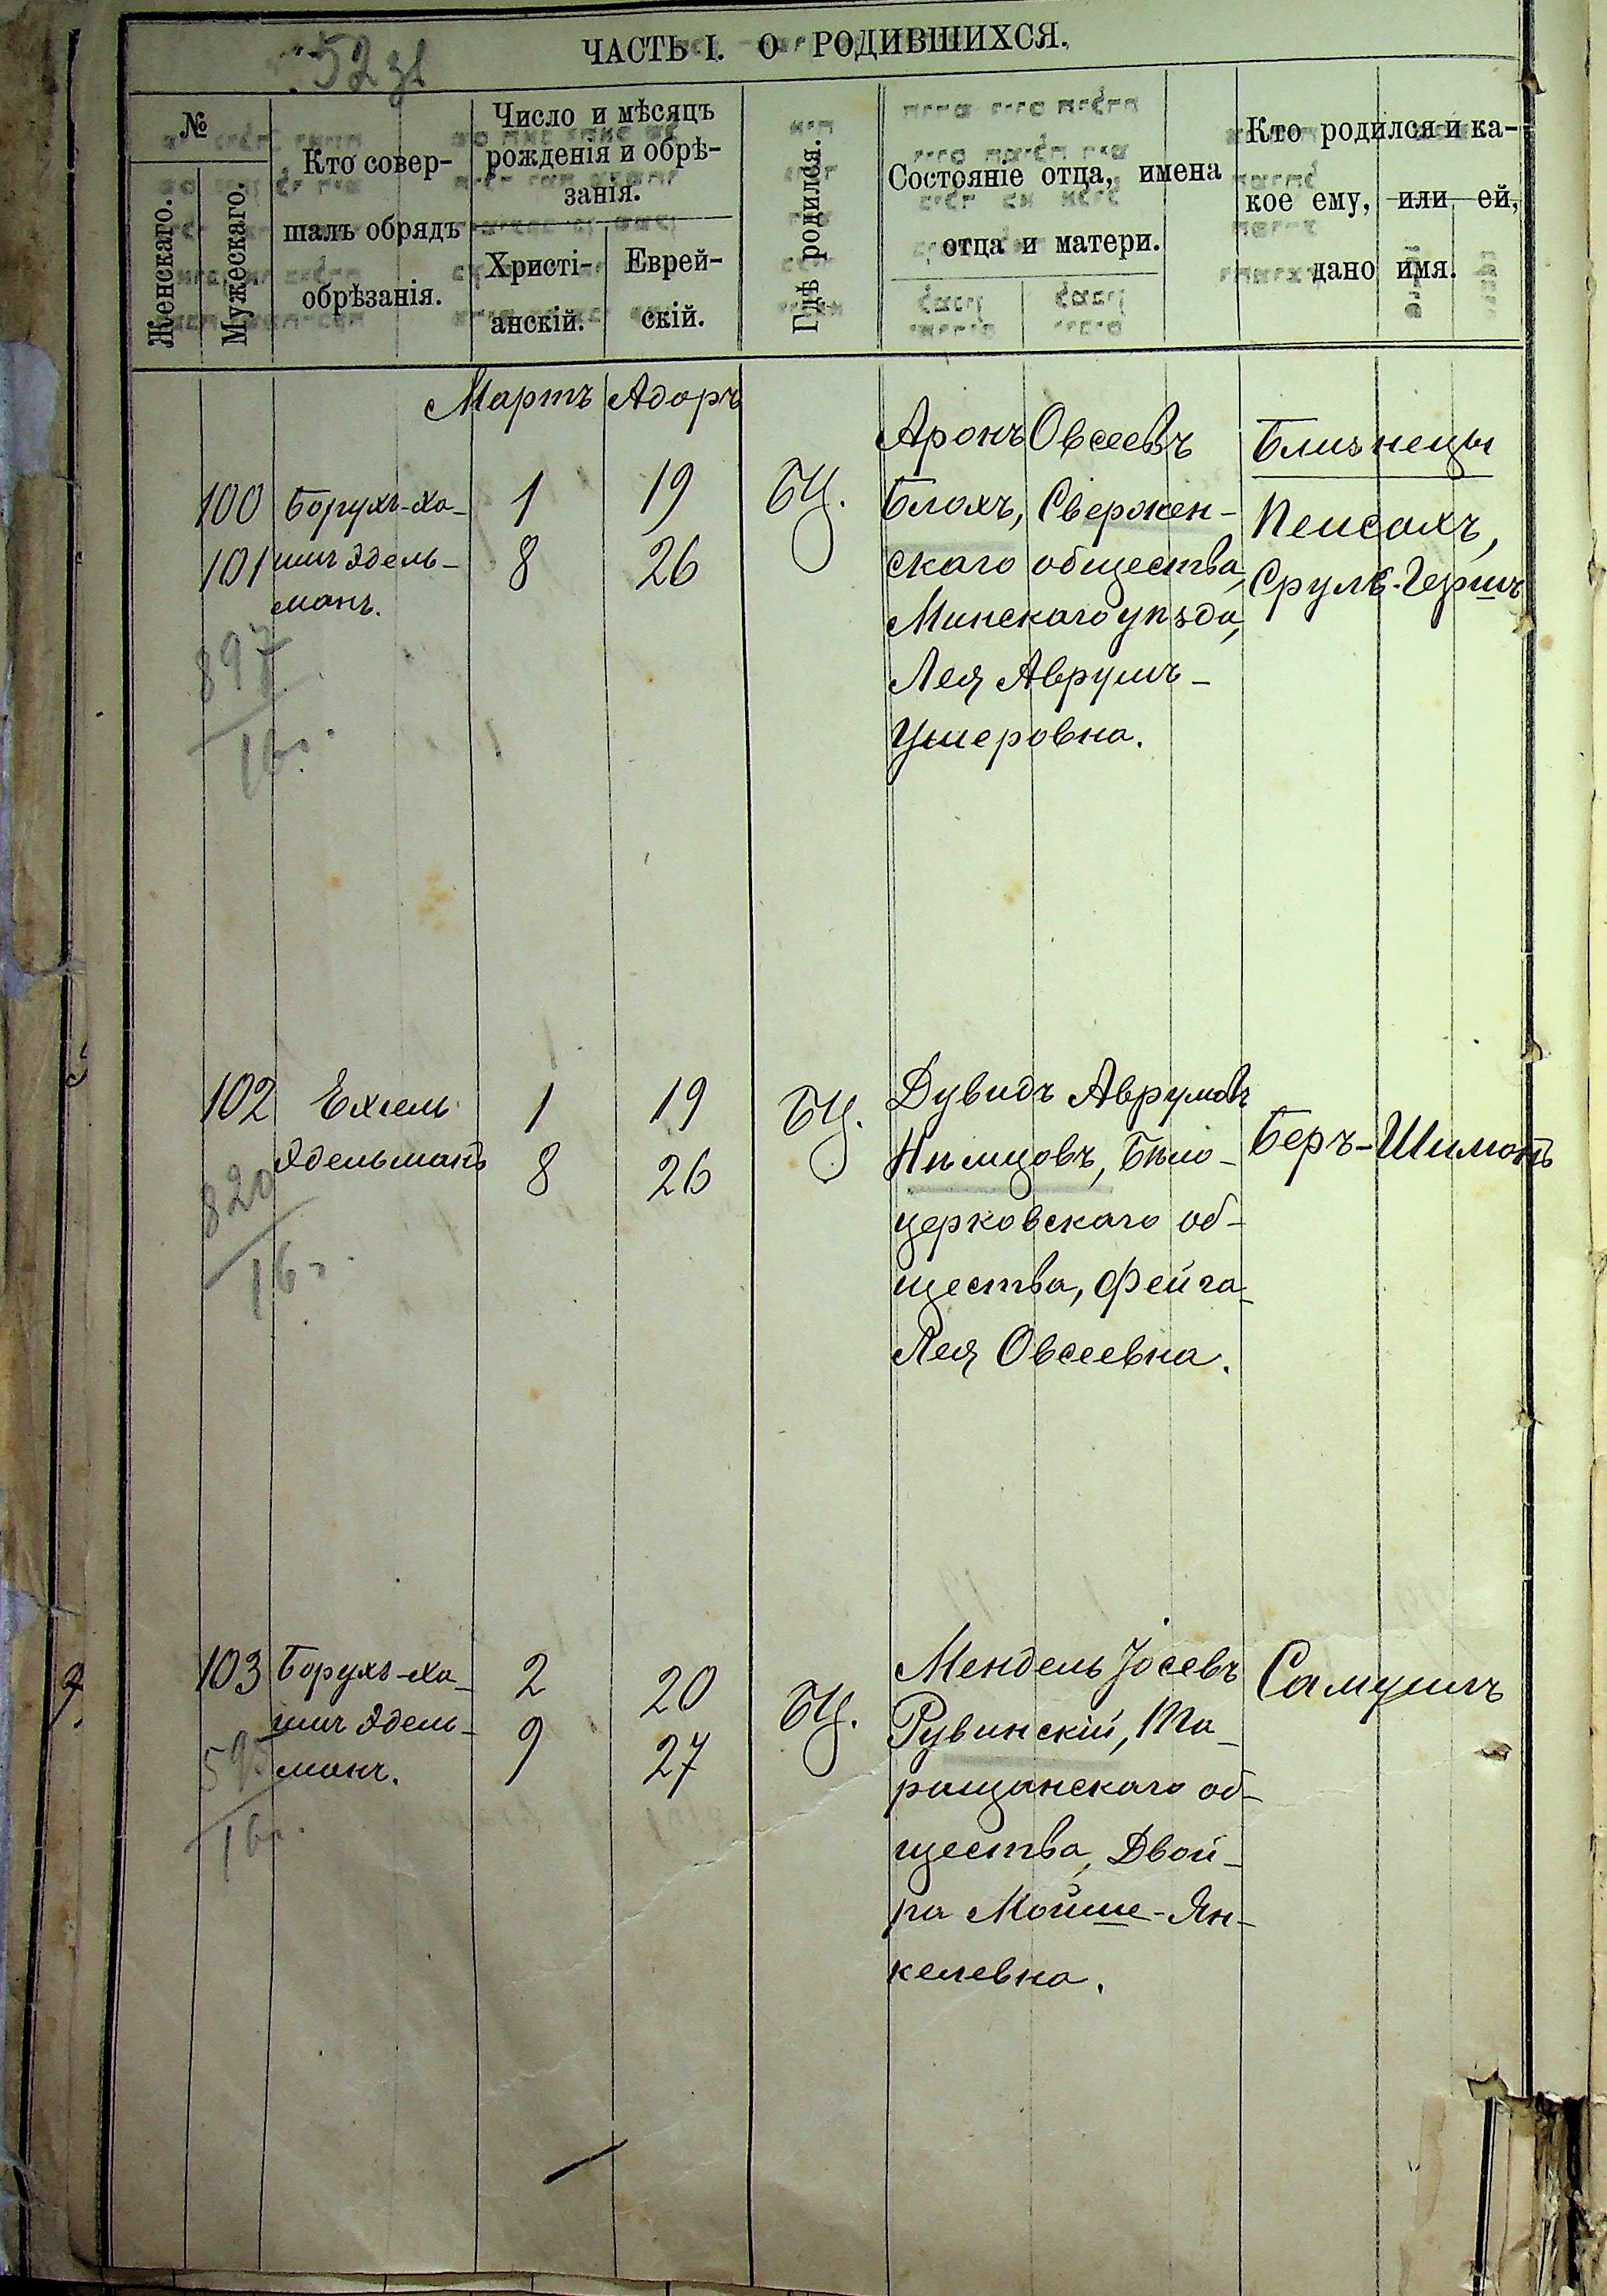 52
ЧАСТЬ I. О РОДИВШИХСЯ.
№
Женскаго.
Мужескаго.
Кто совер-
шалъ обрядъ
обрѣзанія.
Число и мѣсяцъ
рожденія и обрѣ-
занія.
Христі-
анскій.
Еврей-
скій.
Гдѣ родился.
Состояніе отца, имена
отца и матери.
Кто родился и ка-
кое ему, или ей,
дано имя.
Мартъ Адаръ
100
101
Борухъ-Ха-
имъ Эдель-
манъ.
1
8
19
26
БЦ.
Аронъ Овсеевъ
Блохъ, Свержен-
скаго общества,
Минскаго уѣзда,
Лея Аврумъ-
Ушеровна.
Близнецы
Пейсахъ,
Сруль-Гершъ
897
16г.
102
Ехiель
Эдельманъ
1
8
19
26
БЦ.
Дувидъ Аврумовъ
Нѣмцовъ, Бѣло-
церковскаго об-
щества, Фейга-
Лея Овсеевна.
Беръ-Шимонъ
820
16г.
103
Борухъ-Ха-
имъ Эдель-
манъ.
2
9
20
27
БЦ.
Мендель Іосевъ
Рувинскій, Та-
ращанскаго об-
щества, Двой-
ра Мойше-Ян-
келевна.
Самуилъ
595
16г.